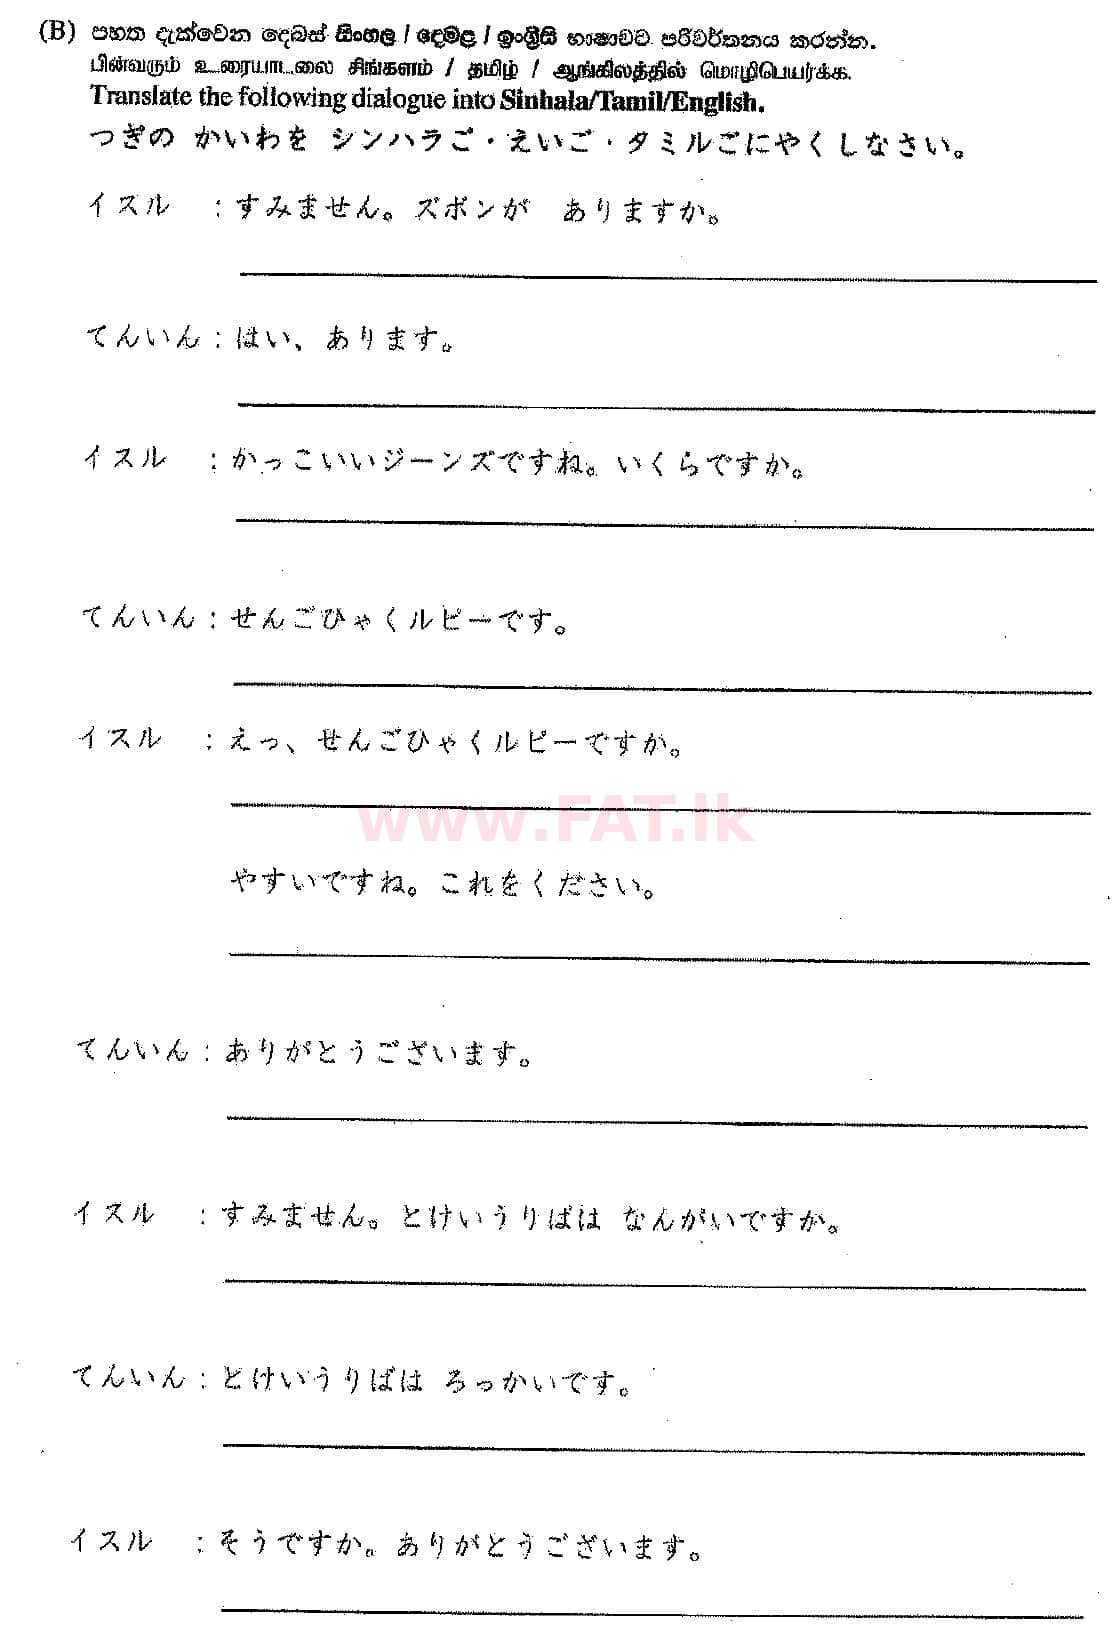 (B) පහත දැක්වෙන දෙබස් සිංහල / දෙමළ / ඉංග්‍රීසි භාෂාවට පරිවර්තනය කරන්න.
பின்வரும் உரையாடலை சிங்களம் / தமிழ் / ஆங்கிலத்தில் மொழிபெயர்க்க.
Translate the following dialogue into Sinhala/Tamil/English.
つぎの かいわを シンハラご・えいご・タミルごにやくしなさい。
イスル : すみません。ズボンが ありますか。
てんいん : はい、あります。
イスル : かっこいいジーンズですね。いくらですか。
てんいん : せんごひゃくルピーです。
イスル : えっ、せんごひゃくルピーですか。
www.FAT.lk
やすいですね。これをください。
てんいん : ありがとうございます。
イスル : すみません。とけいうりばは なんがいですか。
てんいん : とけいうりばは ろっかいです。
イスル : そうですか。ありがとうございます。